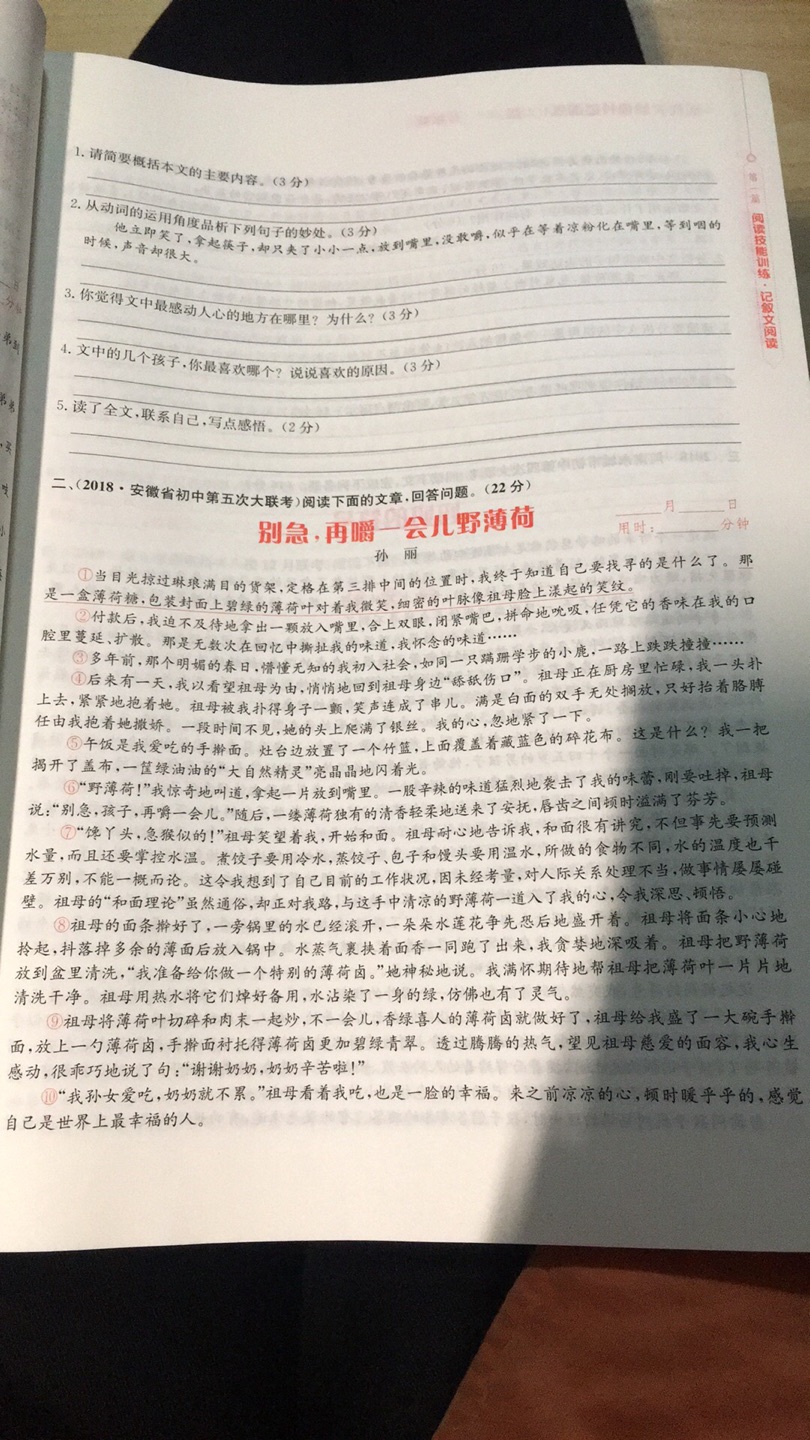 1. 请简要概括本文的主要内容。(3分)
2. 从动词的运用角度品析下列句子的妙处。(3分)
他立即笑了,拿起筷子,却只夹了小小一点,放到嘴里,没敢嚼,似乎在等着凉粉化在嘴里,等到咽的
时候,声音却很大。
3. 你觉得文中最感动人心的地方在哪里?为什么?(3分)
4. 文中的几个孩子,你最喜欢哪个?说说喜欢的原因。(3分)
5. 读了全文,联系自己,写点感悟。(2分)
二、(2018·安徽省初中第五次大联考)阅读下面的文章,回答问题。(22分)
别急,再嚼一会儿野薄荷
月 日
用时: 分钟
孙 丽
①当目光掠过琳琅满目的货架,定格在第三排中间的位置时,我终于知道自己要找寻的是什么了。那
是一盒薄荷糖,包装封面上碧绿的薄荷叶对着我微笑,细密的叶脉像祖母脸上漾起的笑纹。
②付款后,我迫不及待地拿出一颗放入嘴里,合上双眼,闭紧嘴巴,拼命地吮吸,任凭它的香味在我的口
腔里蔓延、扩散。那是无数次在回忆中撕扯我的味道,我怀念的味道……
③多年前,那个明媚的春日,懵懂无知的我初入社会,如同一只蹒跚学步的小鹿,一路上跌跌撞撞……
④后来有一天,我以看望祖母为由,悄悄地回到祖母身边“舔舐伤口”。祖母正在厨房里忙碌,我一头扑
上去,紧紧地抱着她。祖母被我扑得身子一颤,笑声连成了串儿。满是白面的双手无处搁放,只好抬着胳膊
任由我抱着她撒娇。一段时间不见,她的头上爬满了银丝。我的心,忽地紧了一下。
⑤午饭是我爱吃的手擀面。灶台边放置了一个竹篮,上面覆盖着藏蓝色的碎花布。这是什么?我一把
揭开了盖布,一筐绿油油的“大自然精灵”亮晶晶地闪着光。
⑥“野薄荷!”我惊奇地叫道,拿起一片放到嘴里。一股辛辣的味道猛烈地袭击了我的味蕾,刚要吐掉,祖母
说:“别急,孩子,再嚼一会儿。”随后,一缕薄荷独有的清香轻柔地送来了安抚,唇齿之间顿时溢满了芬芳。
⑦“馋丫头,急猴似的!”祖母笑望着我,开始和面。祖母耐心地告诉我,和面很有讲究,不但事先要预测
水量,而且还要掌控水温。煮饺子要用冷水,蒸饺子、包子和馒头要用温水,所做的食物不同,水的温度也千
差万别,不能一概而论。这令我想到了自己目前的工作状况,因未经考量,对人际关系处理不当,做事情屡屡碰
壁。祖母的“和面理论”虽然通俗,却正对我路,与这手中清凉的野薄荷一道入了我的心,令我深思、顿悟。
⑧祖母的面条擀好了,一旁锅里的水已经滚开,一朵朵水莲花争先恐后地盛开着。祖母将面条小心地
拎起,抖落掉多余的薄面后放入锅中。水蒸气裹挟着面香一同跑了出来,我贪婪地深吸着。祖母把野薄荷
放到盆里清洗,“我准备给你做一个特别的薄荷卤。”她神秘地说。我满怀期待地帮祖母把薄荷叶一片片地
清洗干净。祖母用热水将它们焯好备用,水沾染了一身的绿,仿佛也有了灵气。
⑨祖母将薄荷叶切碎和肉末一起炒,不一会儿,香绿喜人的薄荷卤就做好了,祖母给我盛了一大碗手擀
面,放上一勺薄荷卤,手擀面衬托得薄荷卤更加碧绿青翠。透过腾腾的热气,望见祖母慈爱的面容,我心生
感动,很乖巧地说了句:“谢谢奶奶,奶奶辛苦啦!”
⑩“我孙女爱吃,奶奶就不累。”祖母看着我吃,也是一脸的幸福。来之前凉凉的心,顿时暖乎乎的,感觉
自己是世界上最幸福的人。
第一篇 阅读技能训练·记叙文阅读